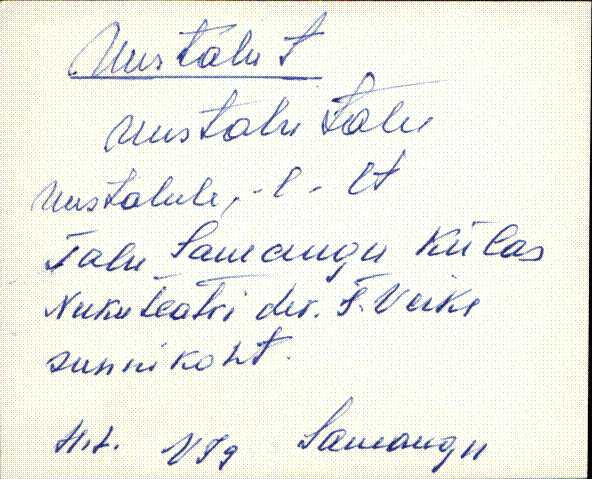 Uustalu t
Uustalu talu
Uustalule, -l - lt
Talu Samangu külas
Nukuteatri dir. F. Veike
sünnikoht.
VJg Samangu